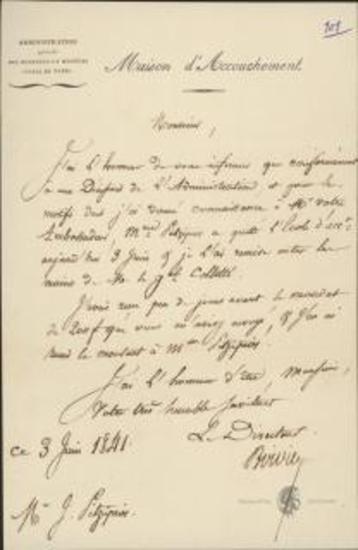 101
ADMINISTRATION
GÉNÉRALE
DES HOSPICES CIVILS DE PARIS
Maison d'Accouchement.
Monsieur,
J'ai l'honneur de vous informer que conformément
à une Décision de l'Administration et pour les
motifs dont j'ai donné connaissance à Mr votre
Ambassadeur, Mme Pitzipios a quitté l'École d'acc.
aujourd'hui 3 Juin & je l'ai remise entre les
mains de M. le gal Colletti.
J'avais reçu peu de jours avant le mandat
de 200f que vous m'aviez envoyé, & j'en ai
remis le montant à Mme Pitzipios.
J'ai l'honneur d'être, Monsieur,
Votre très humble serviteur
Le Directeur
ce 3 Juin 1841
Mr J. Pitzipios